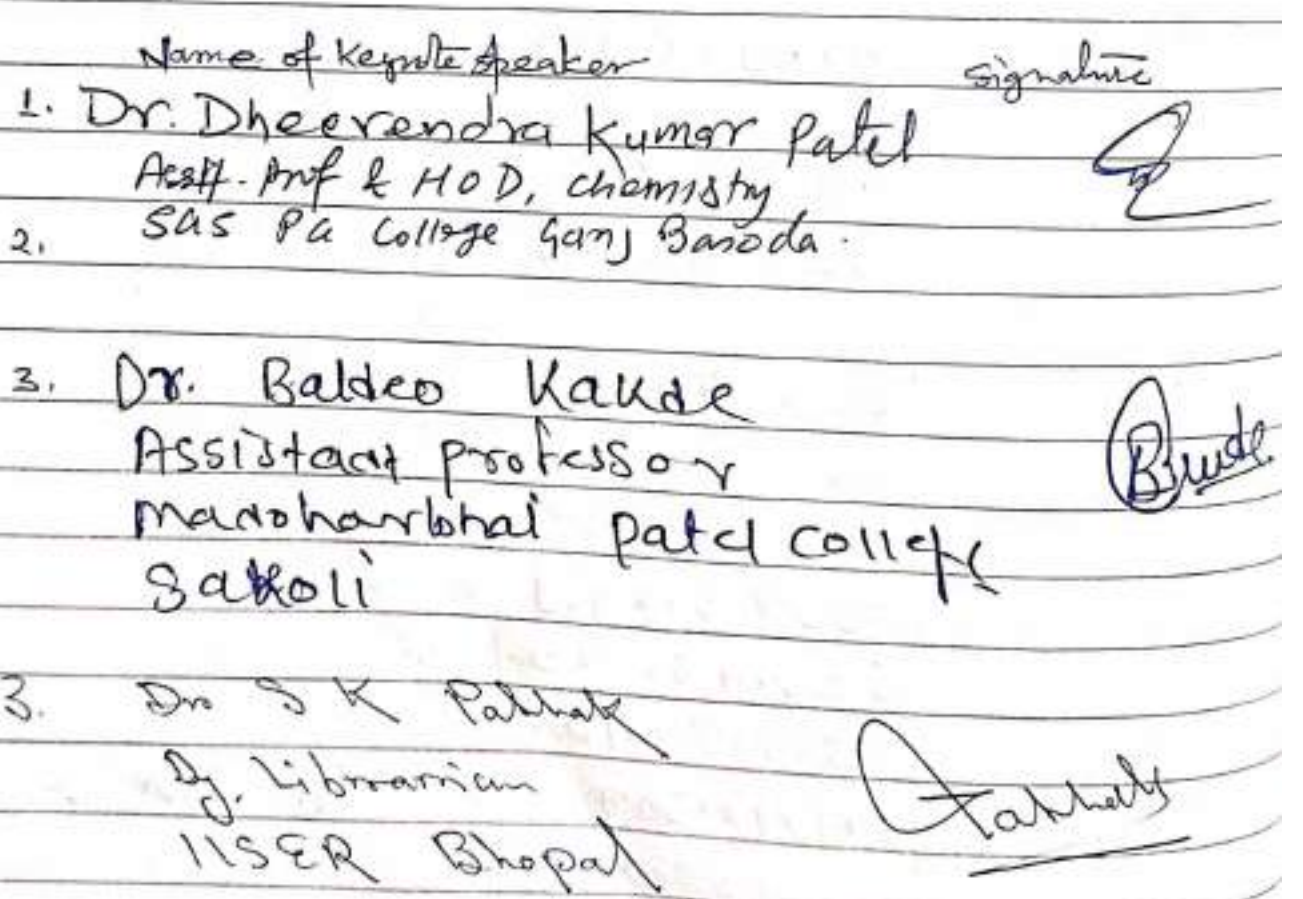 Name of Keynote speaker signature
1. Dr. Dheerendra Kumar Patel
Asstt. Prof & HOD, Chemistry
2. SGS PG College Ganj Basoda.
3. Dr. Baldeo Kakde
Assistant professor
manoharbhai patel college
Sakoli
3. Dr S K Pathak
Dy. Librarian
IISER Bhopal